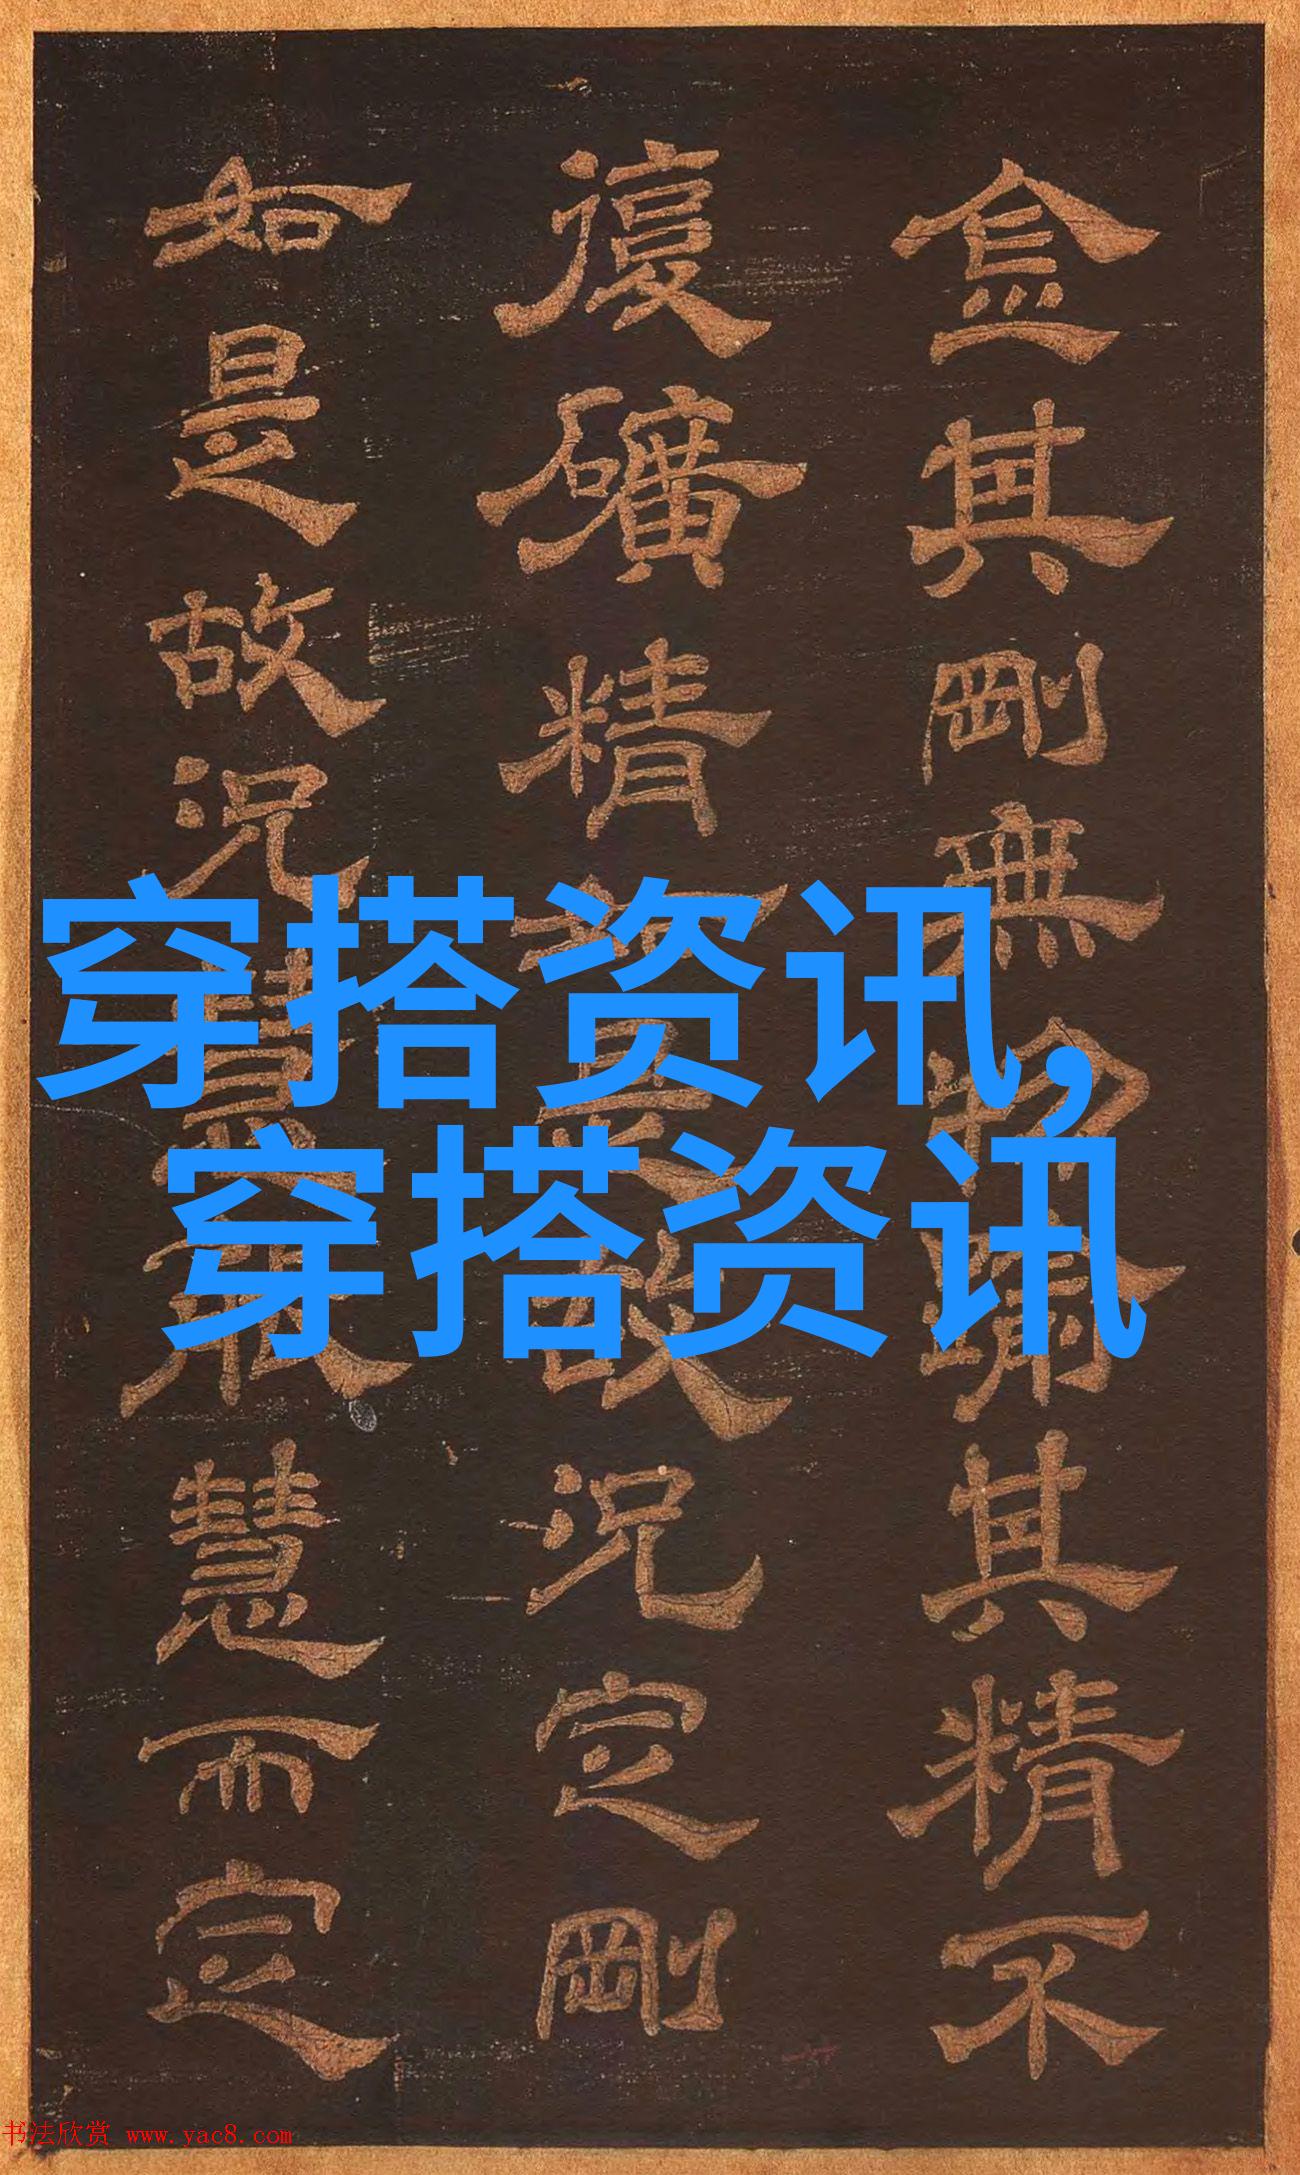 金其剛無物踰其精不
復礦精故況定剛
如是故況慧而定
穿搭资讯,
穿搭资讯
书法欣赏 www.yac8.com